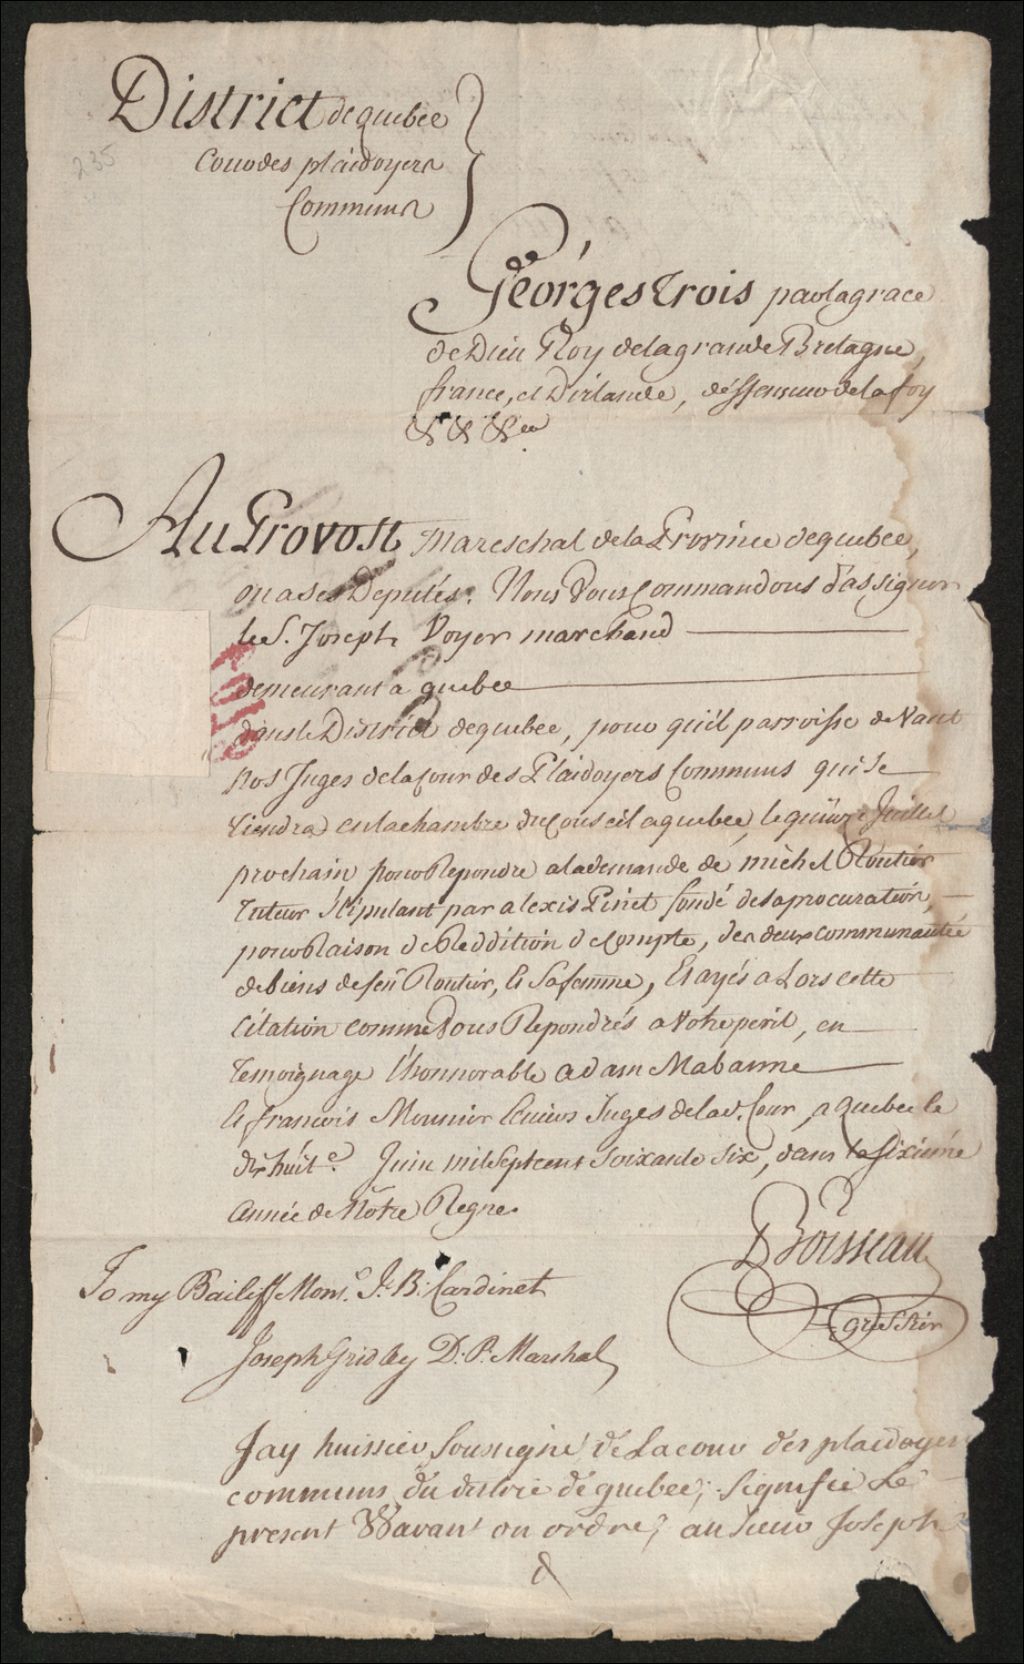 District de quebec
Cour des plaidoyers
Communs
235
Georges trois par la grace
de Dieu Roy de la grande Bretagne,
france, et D'irlande, déffenseur de la foy
& & &ca
Au Provost Mareschal de la Province de quebec,
ou a ses Deputés. Nous Vous Commandons d'assigner
le S. Joseph Voyer marchand
demeurant a quebec
dans le District de quebec, pour qu'il parroisse deVant
Nos Juges de la Cour des Plaidoyers Communs qui se
tiendra en la chambre du Conseil a quebec, le quinze Juillet
prochain pour Repondre a la demande de michel Routier
tuteur stipulant par alexis Pinet fondé de sa procuration,
pour Raison de Reddition de Compte, des deux communautée
de biens de feu Routier, & sa femme, Et ayés a Lors cette
Citation comme Vous Repondrés a Votre peril, en
temoignage l'honnorable adam Mabanne
& francois Mounier Ecuiers Juges de lad. Cour, a Quebec le
dix huit e. Juin mil Sept cent soixante six, dans la sixiéme
année de Nôtre Regne.
Boisseau
greffier
To my Bailiff Monsr. J. B. Cardinet
Joseph Gridley D. P. Marshal
Jay huissier Soussigné de La cour des plaidoyer
communs du distric de quebec, signifié Le
present Warant ou ordre, au sieur Joseph